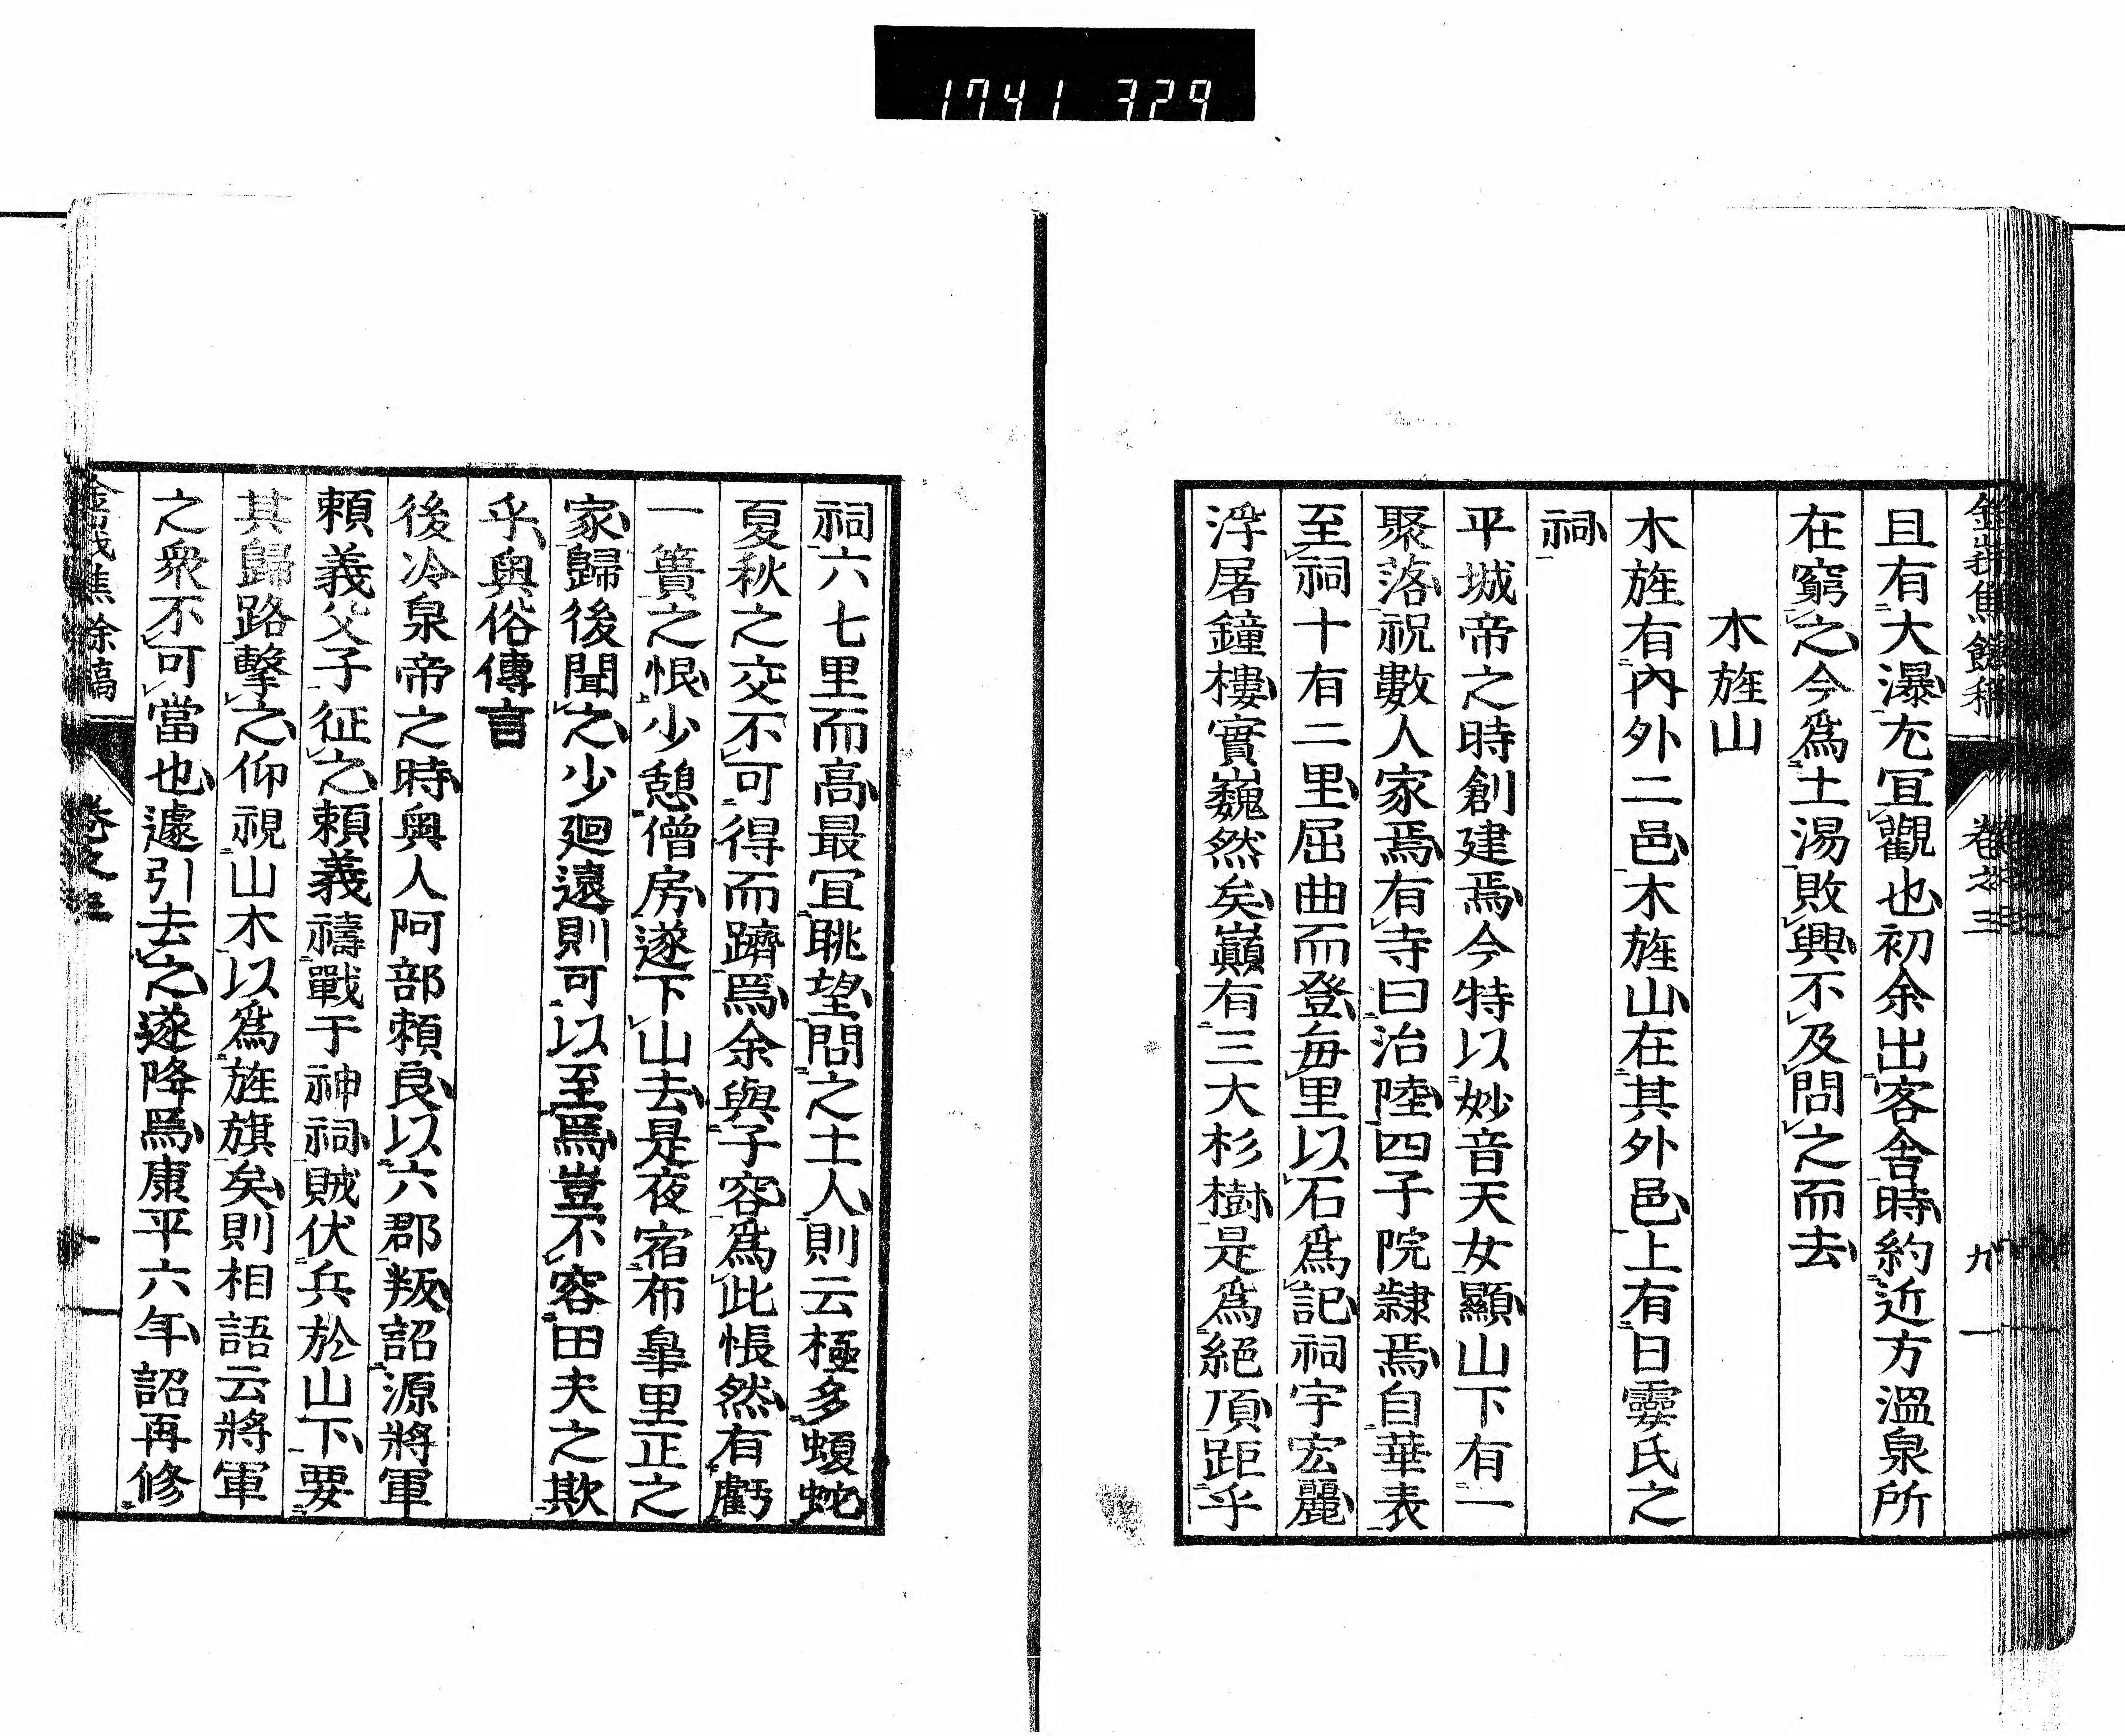 1741 329
卷之三
九
且有大瀑尤宜觀也初余出客舍時約近方溫泉所
在窮之今為土湯敗興不及問之而去
木旌山
木旌有內外二邑木旌山在其外邑上有日靈氏之
祠
平城帝之時創建焉今特以妙音天女顯山下有一
聚落祝數人家焉有寺曰治陸四子院隸焉自華表
至祠十有二里屈曲而登每里以石為記祠宇宏麗
浮屠鐘樓實巍然矣巔有三大杉樹是為絕頂距乎
祠六七里而高最宜眺望問之土人則云極多蝮蛇
夏秋之交不可得而躋焉余與子容為此悵然有虧
一簣之恨少憩僧房遂下山去是夜宿布皐里正之
家歸後聞之少廻遠則可以至焉豈不容田夫之欺
乎與俗傳言
後冷泉帝之時奧人阿部賴良以六郡叛詔源將軍
賴義父子征之賴義禱戰于神祠賊伏兵於山下要
其歸路擊之仰視山木以為旌旗矣則相語云將軍
之衆不可當也遽引去之遂降焉康平六年詔再修
餘稿
卷之三